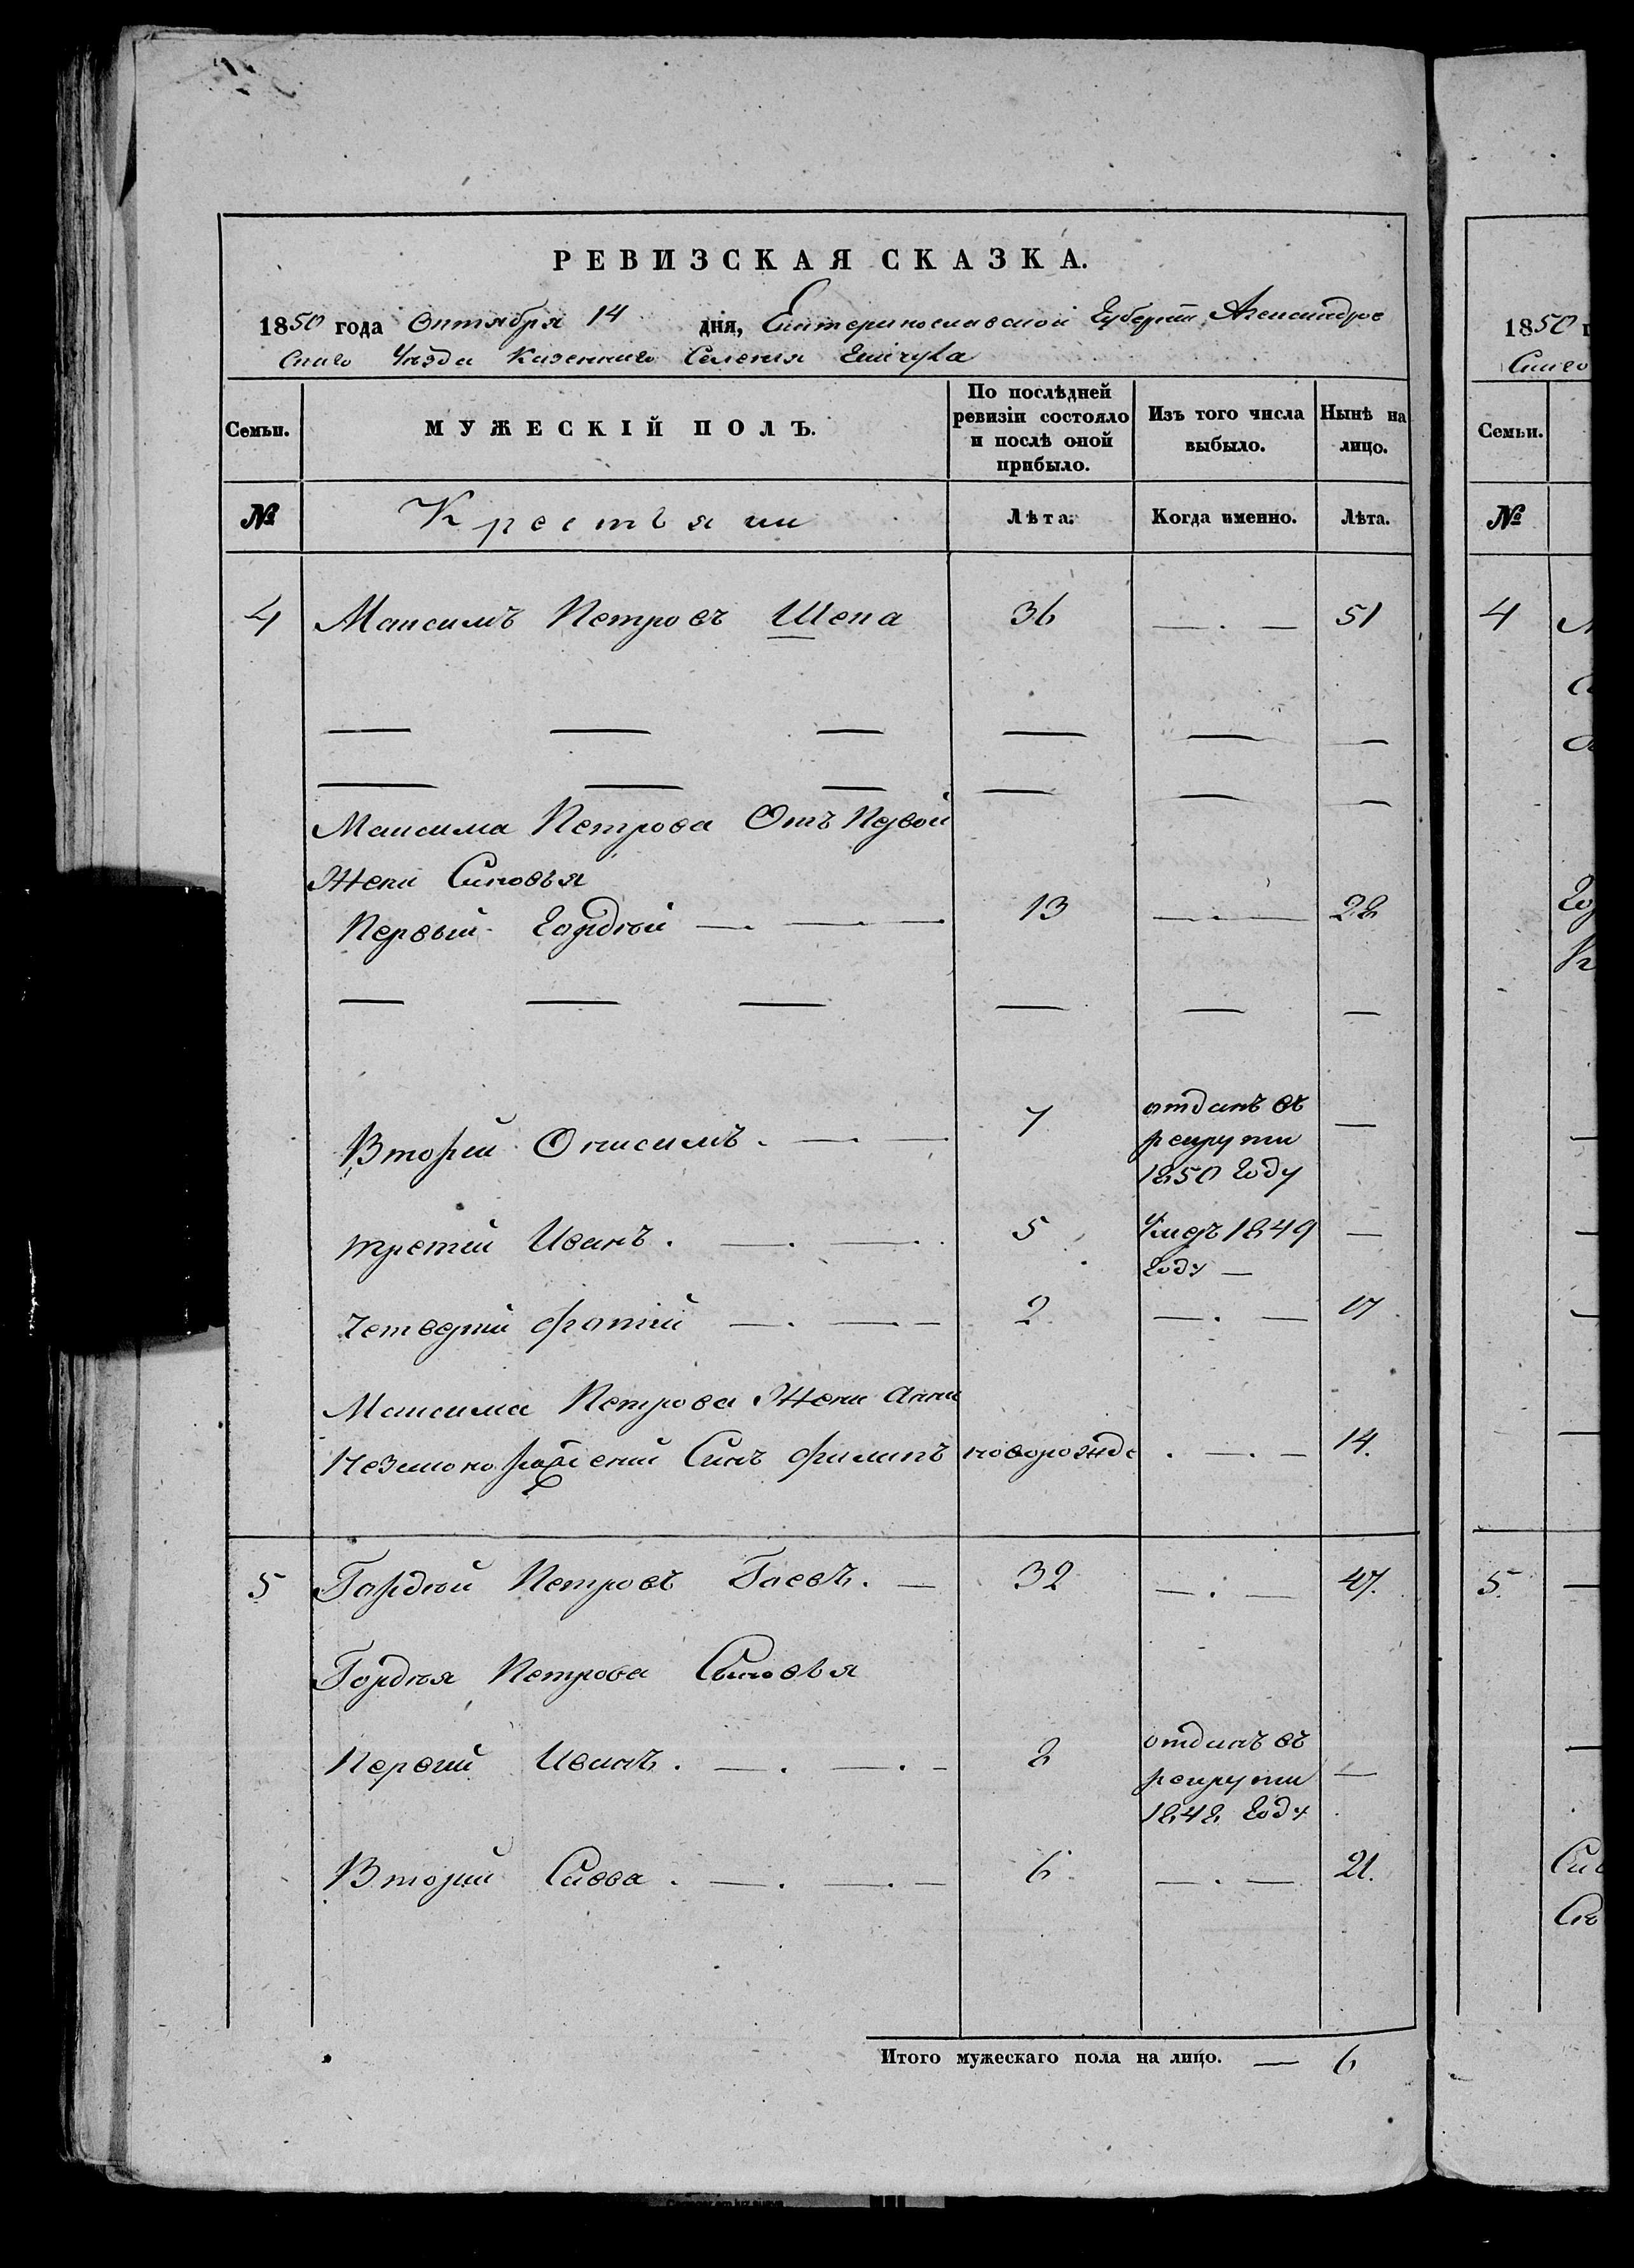 РЕВИЗСКАЯ СКАЗКА.
1850 года Октября 14 дня, Екатеринославской Губерніи Александров
скаго Уезда Казеннаго Селенія
Семьи. МУЖЕСКІЙ ПОЛЪ. По послѣдней ревизіи состояло и послѣ оной прибыло. Изъ того числа выбыло. Нынѣ на лицо.
№ Крестьяни Лѣта. Когда именно. Лѣта.
4 Максимъ Петровъ Шепа 36 — . — 51
Максима Петрова Отъ Первой
Жени Синовья
Первый Гордѣй — . — . — 13 — . — . — 28
Вторий Онисимъ . — . — 7 отданъ въ
рекрути
1850 Году —
третий Иванъ . — . — . 5 Умеръ 1849 —
Году —
Четверти Фотий — . — . — 2 — . — 17
Максима Петрова Жени Анни
Незаконорожденій Синъ Филипъ новорожде . — . — 14.
5 Гордѣй Петровъ Гаевъ. — 32 — . — 47.
Гордѣя Петрова Сыновья
Первий Иванъ . — . — . – 2 отданъ въ
рекрути
1848 Году —
Вторий Савва . — . — . – 6 — . — 21.
Итого мужескаго пола на лицо. — 6
1850
Скаго
Семьи.
№
4
5.